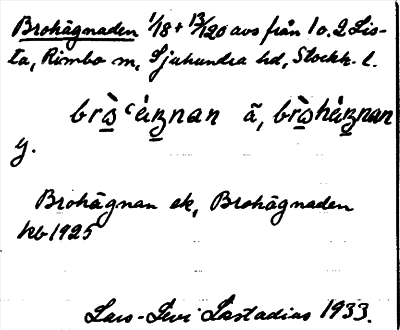 Brohägnaden 1/18 + 13/120 avs från 1 o. 2 Lis-
ta, Rimbo sn, Sjuhundra hd, Stockh. l.
brò̱ʿáʒnan ä, brò̱háʒnan
y.
Brohägnan ek, Brohägnaden
kb 1925
Lars-Levi Læstadius 1933.